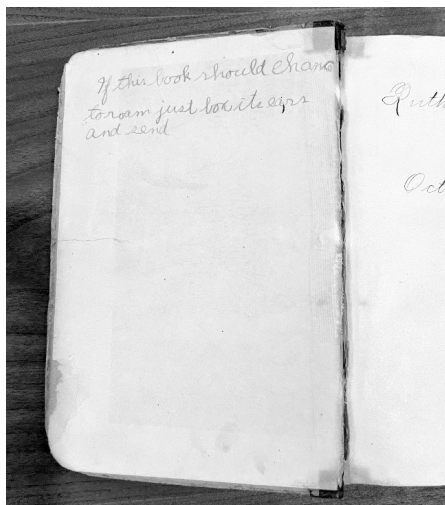 If this book should chanc
to roam just box its ears
and send
Ruth
Oct